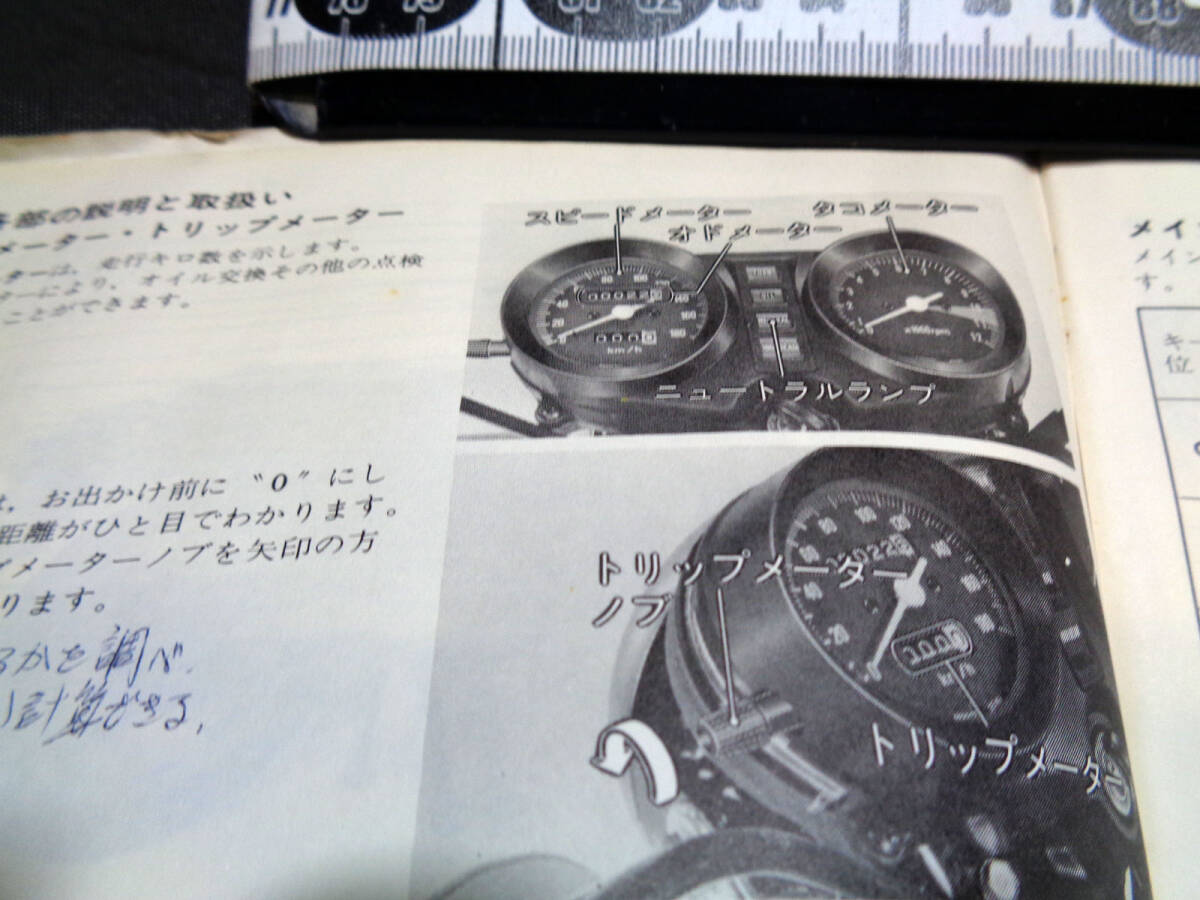 部の説明と取扱い
メーター・トリップメーター
ターは、走行キロ数を示します。
ターにより、オイル交換その他の点検
ことができます。
は、お出かけ前に〝0〞にし
距離がひと目でわかります。
メーターノブを矢印の方
ります。
るかを調べ、
計算できる。
スピードメーター
タコメーター
オドメーター
km/h
x1000rpm
ニュートラルランプ
トリップメーター
ノブ
トリップメーター
メイ
メイン
す。
キー
位